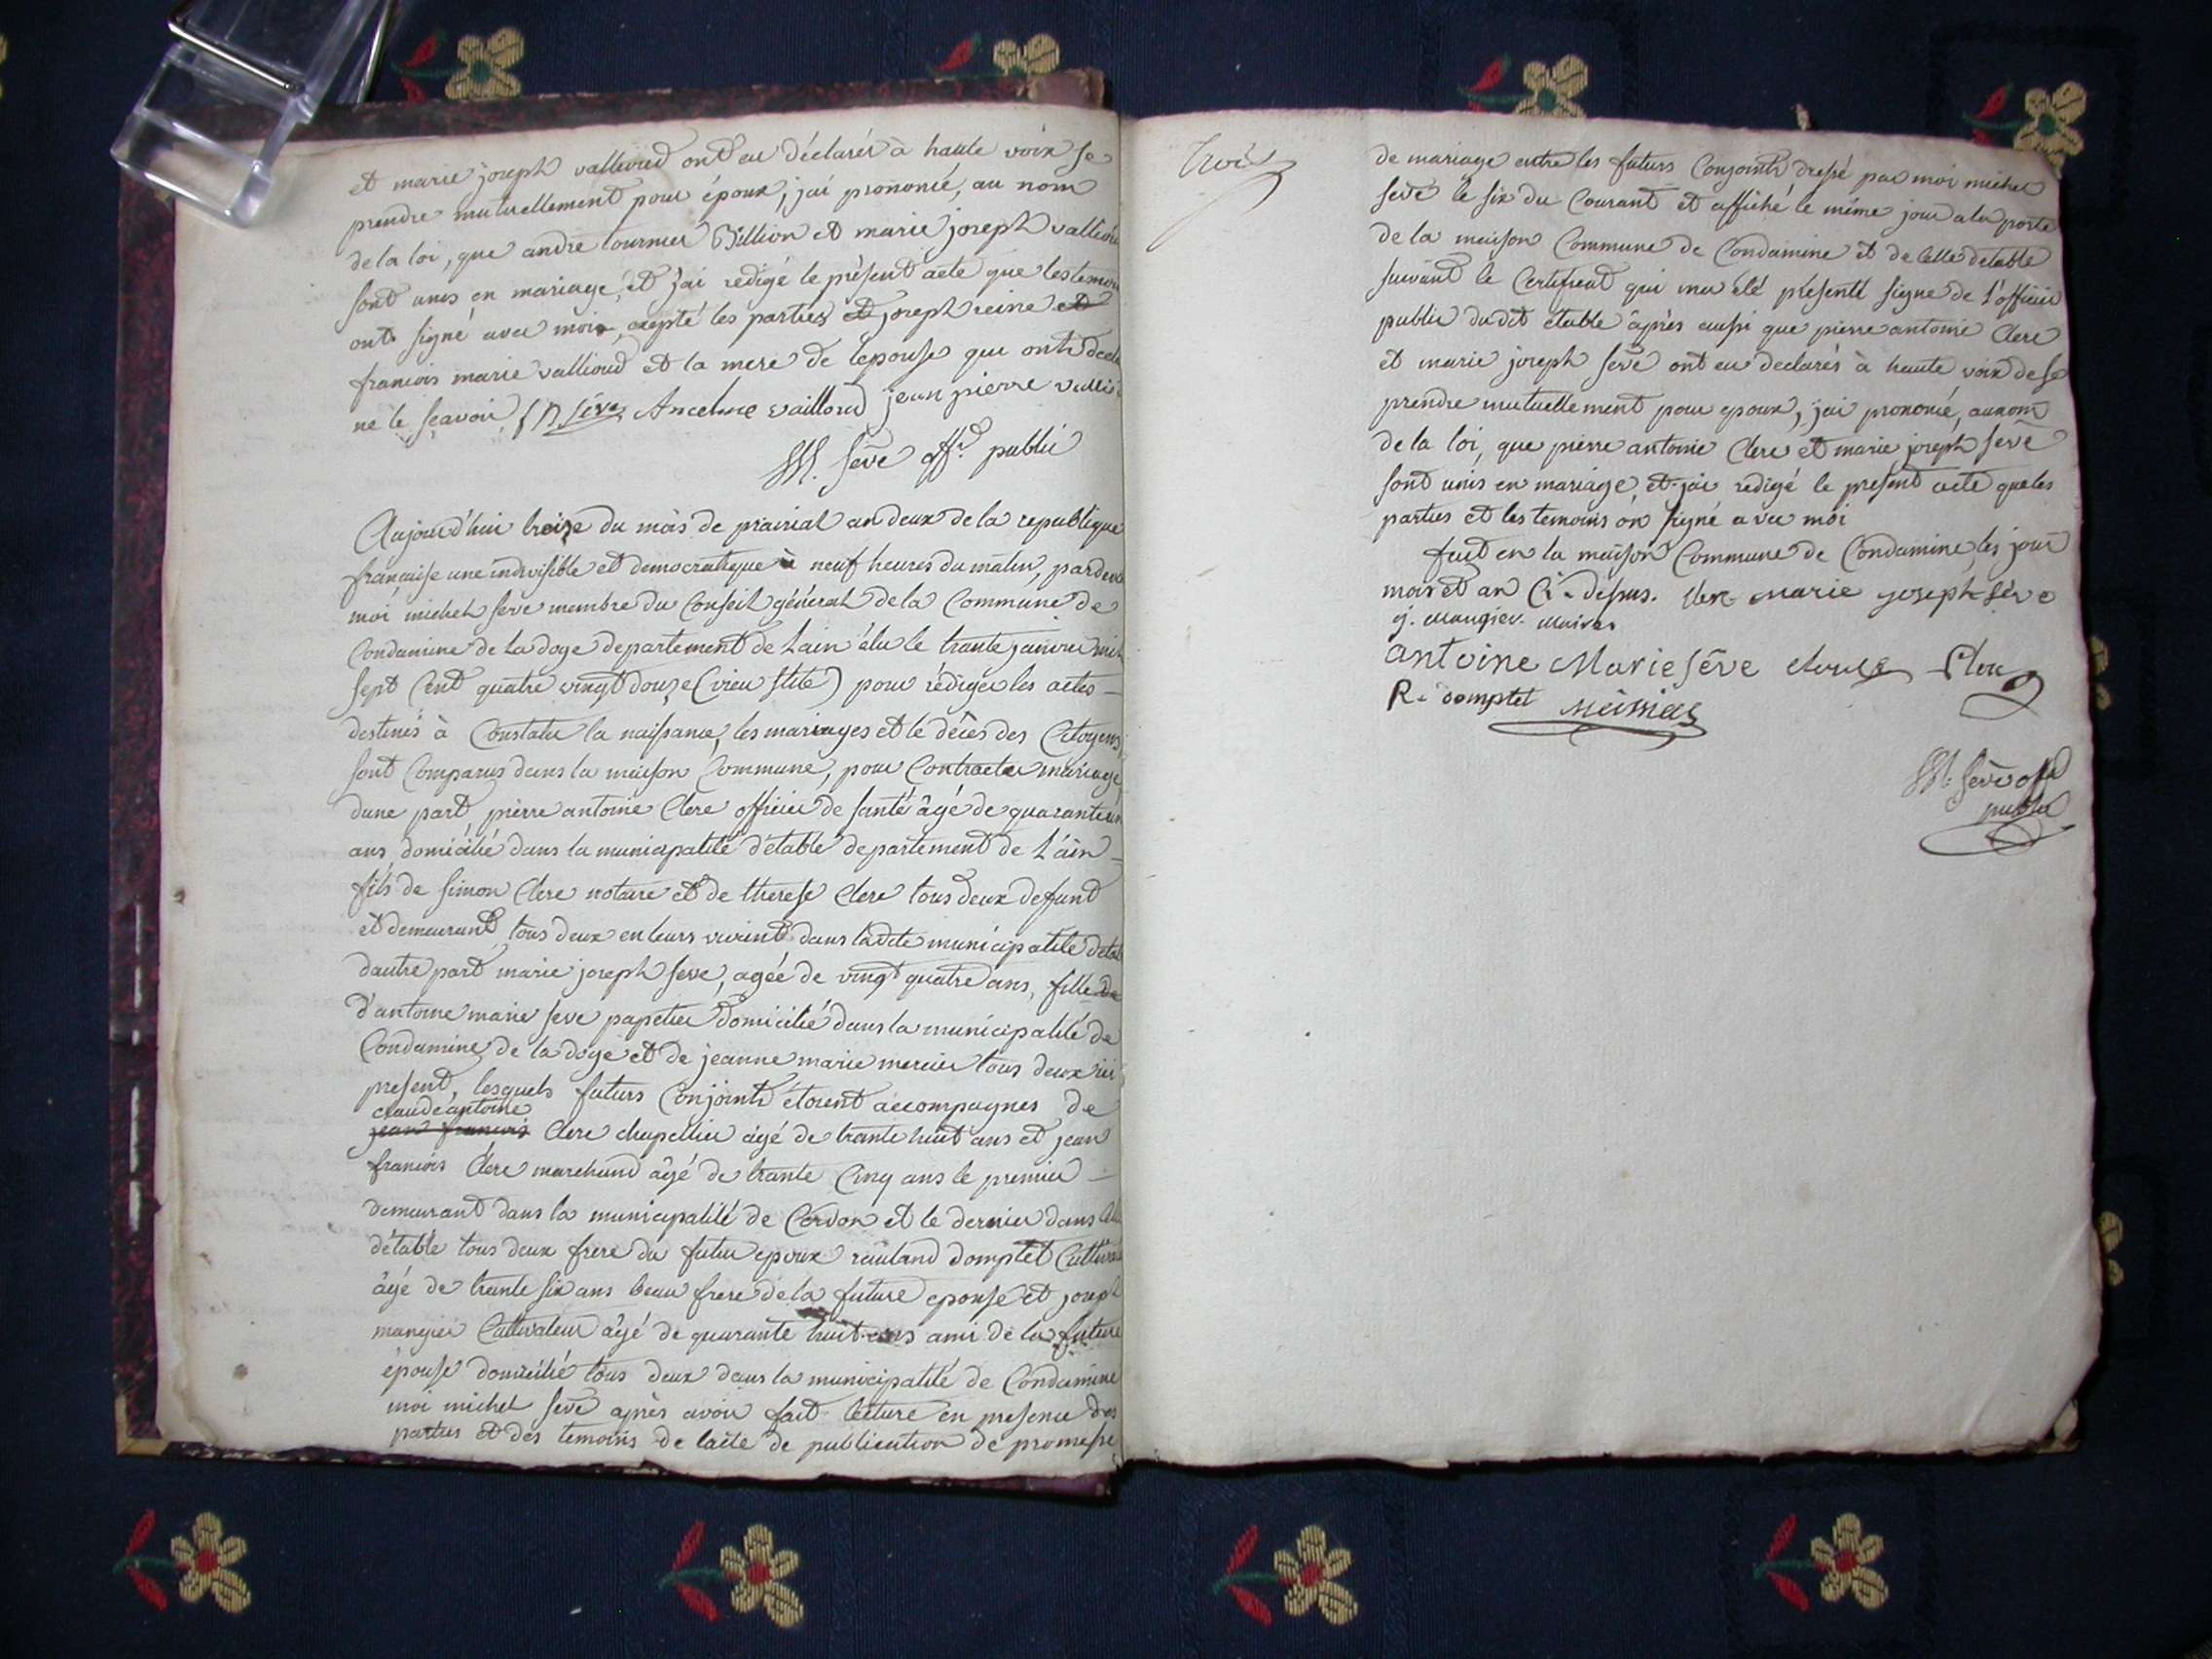 et marie joseph vallioud ont eu déclarés à haute voix se
prendre mutuellement pour époux, j'ai prononcé, au nom
de la loi, que andre tournier Billion et marie joseph vallioud
sont unis en mariage, et j'ai redigé le présent acte que les temoins
ont signé avec moi excepté les parties et joseph reine et
francois marie vallioud et la mere de lepouse qui ont declaré
ne le sçavoir Sève Ancelme vailloud jean pierre vallioud
M. seve off. public
Aujourd'hui treize du mois de prairial an deux de la republique
francaise une indivisible et democratique à neuf heures du matin, pardevant
moi michel seve membre du Conseil général de la Commune de
Condamine de la doye departement de Lain élu le trante janvier mil
sept Cent quatre vingt douze (vieu stile) pour rédiger les actes
destinés à Constater la naissance, les mariages et le décès des Citoyens,
sont Comparus dans la maison Commune, pour Contracter mariage
dune part pierre antoine Clerc officier de santé âgé de quarante un
ans domicilié dans la municipalité détable departement de L'ain
fils de simon Clerc notaire et de therese Clerc tous deux defunt
et demeurant tous deux en leurs vivint dans ladite municipalité détable
dautre part marie joseph seve, agée de vingt quatre ans, fille de
d'antoine marie seve papetier domicilié dans la municipalité de
Condamine de la doye et de jeanne marie mercier tous deux ici
present, lesquels futurs Conjoints étoient accompagnes de
claude antoine
jean francois Clerc chapellier âgé de trante huit ans et jean
francois Clerc marchand âgé de trante Cinq ans le premier
demeurant dans la municipalité de Cerdon et le dernier dans Celle
détable tous deux frere du futur epoux rauland domptet Cultivateur
âgé de trante six ans beau frere de la future epouse et joseph
mangier Cultivateur âgé de quarante huit ans ami de la future
épouse domicilié tous deux dans la municipalité de Condamine
moi michel seve après avoir fait lecture en presence des
parties et des temoins de lacte de publication de promesse
trois
de mariage entre les futurs Conjoints dressé par moi michel
seve le six du Courant et affiché le même jour a la porte
de la maison Commune de Condamine et de Celle détable
suivant le Certificat qui ma été présenté signe de l'officier
public dudit étable après aussi que pierre antoine Clerc
et marie joseph seve ont eu declarés à haute voix de se
prendre mutuellement pour epoux, j'ai prononcé, au nom
de la loi, que pierre antoine Clerc et marie joseph seve
sont unis en mariage, et j'ai redigé le present acte que les
parties et les temoins on signé avec moi
fait en la maison Commune de Condamine les jour
mois et an Ci-dessus. Clerc marie joseph Sève
j. Maugier. Maire
antoine Marie Sève Clerc Clerc
R. domptet Mermier
M. Seve off
public